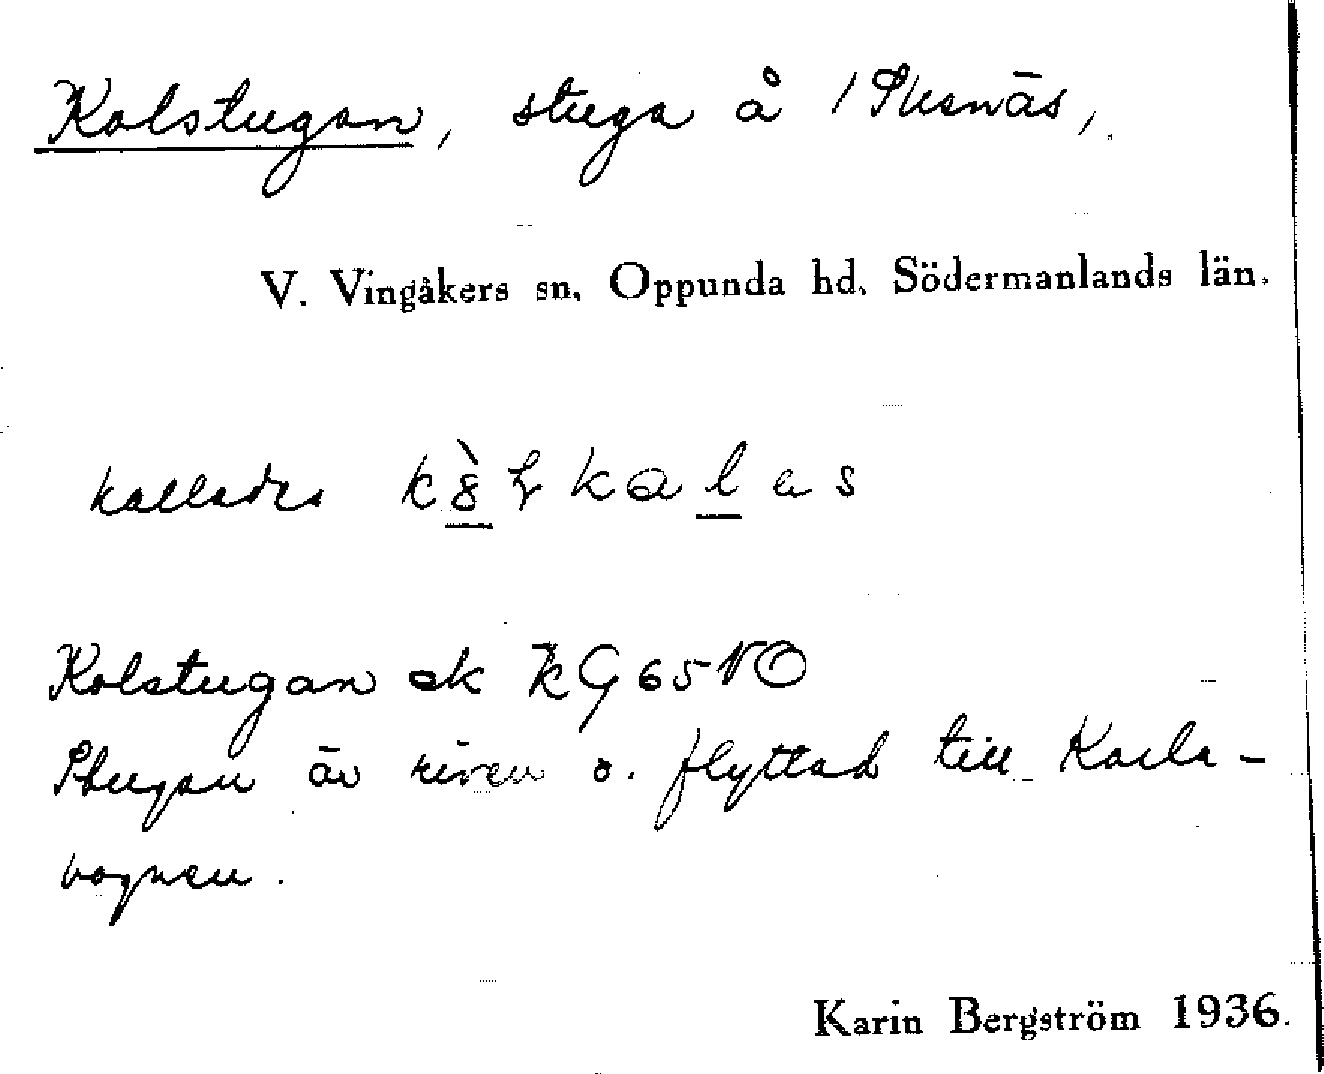 Kolstugan, stuga å 1 Skenäs,
V. Vingåkers sn, Oppunda hd. Södermanlands län.
kallades
Kolstugan ek kG 65 NO
Stugan är riven o. flyttad till Karla-
vagnen.
Karin Bergström 1936.